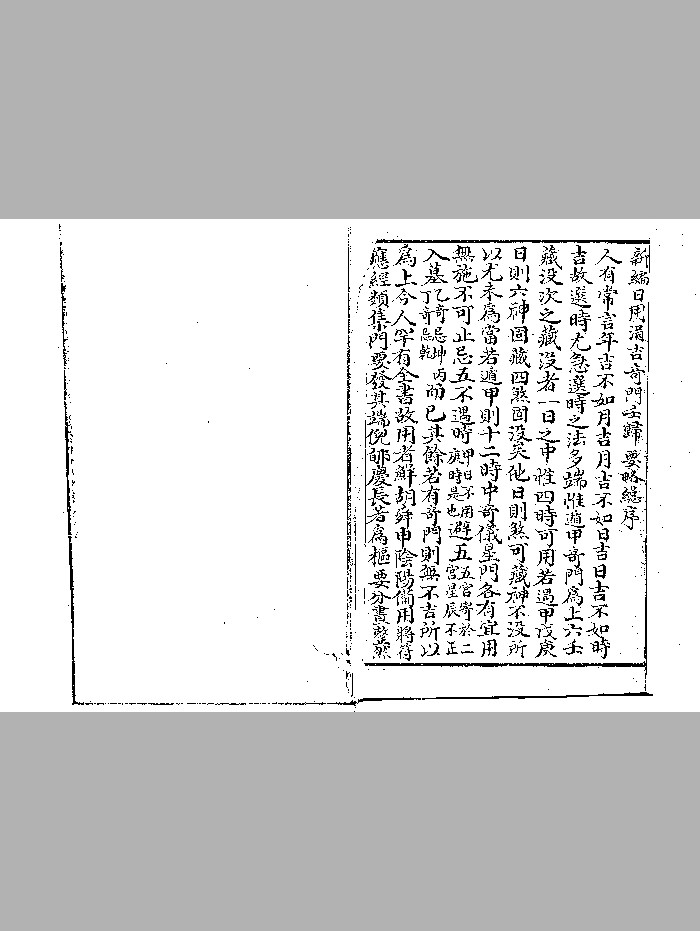 新編日用涓吉奇門五總歸要略總序
人有常言年吉不如月吉月吉不如日吉日吉不如時
吉故選時尤急選時之法多端惟遁甲奇門為上六壬
藏没次之藏没者一日之中惟四時可用若遇甲戊庚
日則六神固藏四煞固没矣他日則煞可藏神不没所
以尤未為當若遁甲則十二時中奇儀星門各有宜用
無施不可止忌五不遇時甲日不用庚時是也避五五宮寄於二宮星辰不正
入墓乙奇忌坤丙丁奇忌乾而已其餘若有奇門則無不吉所以
為上今人罕有全書故用者鮮胡舜申陰陽備用將符
應經類集門要發其端倪郎慶長若為樞要分晝